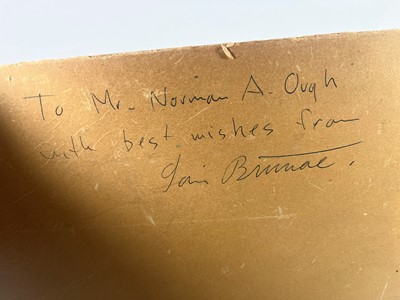 To Mr. Norman A. Ough
with best wishes from